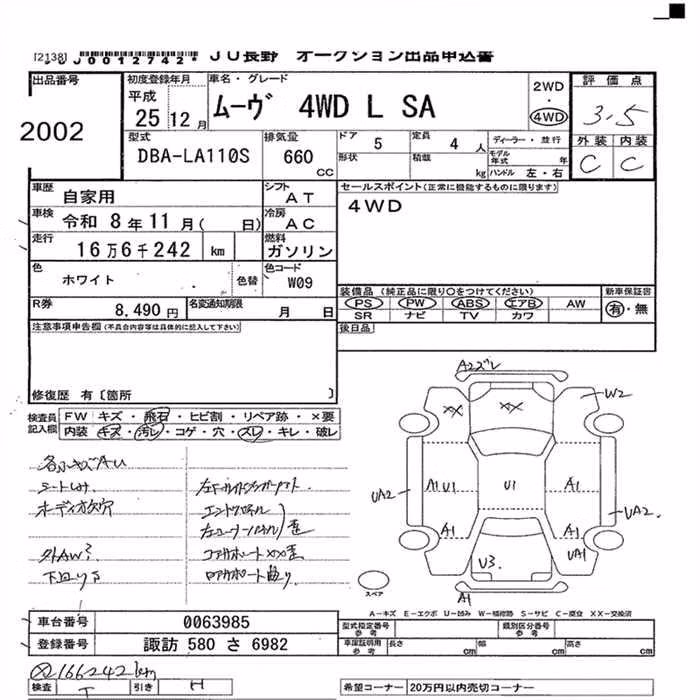 [2138]
*JU0012742*
JU長野 オークション出品申込書
出品番号
2002
初度登録年月
平成
25 12 月
車名・グレード
ムーヴ 4WD L SA
2WD
4WD
評価点
3.5
外装 内装
C C
型式
DBA-LA110S
排気量
660 CC
ドア 5
形状
定員 4 人
積載 kg
ディーラー・並行
モデル年式 年
ハンドル 左・右
車歴
自家用
シフト
AT
車検
令和 8年 11月 ( 日)
冷房
AC
走行
16万6千242 km
燃料
ガソリン
色
ホワイト
色替
色コード
W09
R券
8,490 円
名変通知期限
月 日
セールスポイント(正常に機能するものに限ります)
4WD
装備品 (純正品に限り○をつけてください)
PS PW ABS エアB AW
SR ナビ TV カワ
新車保証書
有・無
後日品
注意事項申告欄(不具合内容等は具体的に記入して下さい)
修復歴 有〔箇所 〕
検査員記入欄
FW キズ・飛石・ヒビ割・リペア跡・×要
内装 キズ・汚レ・コゲ・穴・スレ・キレ・破レ
各部キズAU
シートしみ
オーディオ欠穴
外AW3
下回りサ
コアサポートXX歪
A2ズレ
XX XX W2
UA2 A1 U1 U1 A1 UA2
A1 A1
U3 UA1
A1
スペア
A-キズ E-エクボ U-凹み W-補修跡 S-サビ C-腐食 XX-交換済
車台番号 0063985
登録番号 諏訪 580 さ 6982
型式指定番号 参考
類別区分番号 参考
車庫証明用 参考
長さ cm 幅 cm 高さ cm
166242km
検査 T 引き H
希望コーナー 20万円以内売切コーナー